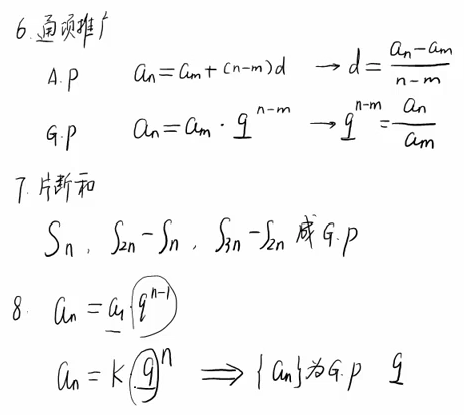 6. 通项推广
A.P aₙ = aₘ + (n-m)d → d = (aₙ - aₘ)/(n-m)
G.P aₙ = aₘ · q^(n-m) → q^(n-m) = aₙ/aₘ
7. 片断和
Sₙ, S₂ₙ - Sₙ, S₃ₙ - S₂ₙ 成 G.P
8. aₙ = a₁ q^(n-1)
aₙ = K(q)^n ⟹ {aₙ}为G.P q